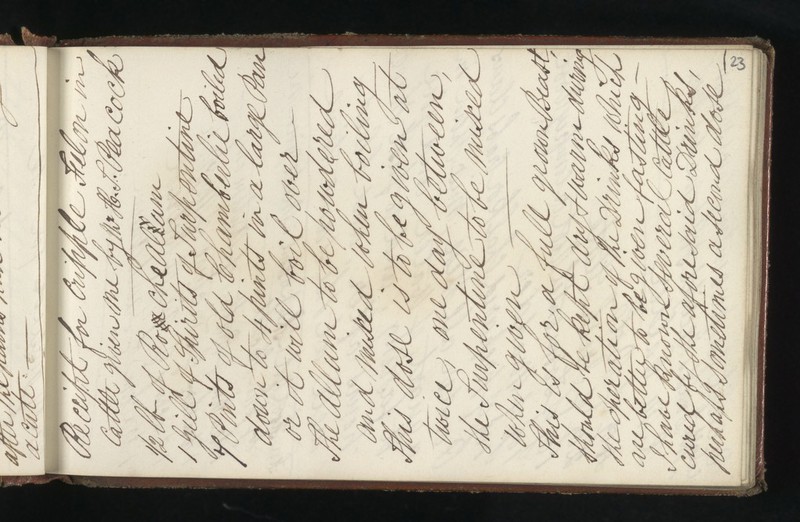 23
Receipt for Cripple Felon in
Cattle given me by Mr R. S. Peacock
1/2 lb of Roche Allum
1 gill of Spirits of Turpentine
7 Pints of old Chamberlie boiled
down to 4 pints in a large Pan
or it will boil over —
The Allum to be powdered
and mixed when boiling
This dose is to be given at
twice, one day between,
the Turpentine to be mixed
when given —
This is for a full grown Beast,
should be kept dry & warm during
the operation of the Drinks which
are better to be given fasting —
I have known several Cattle
cured by the aforesaid Drinks,
perhaps sometimes a second dose
after
acute. —